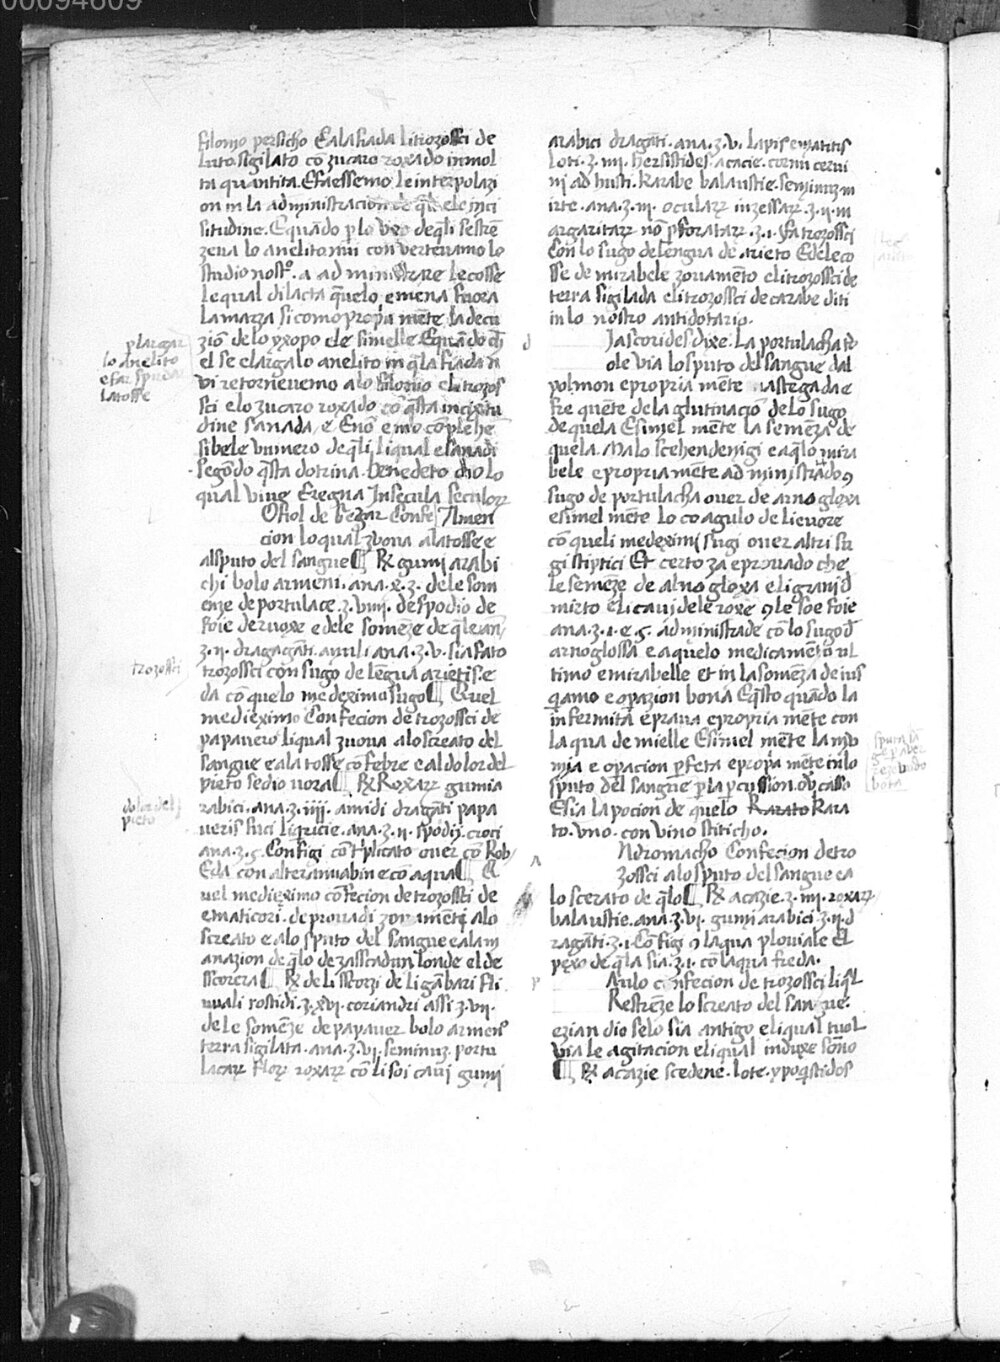 00094609
filonio persicho E ala fiada li trozossci de
luto sigilato cō zucaro roxado in mol
ta quantita. E faessemo le interpolazi
on in la administracion de q̄l ele inci
situdine. E quādo p lo uxo de q̄li se strē
zeua lo anelito nui conuerteuamo lo
studio nost°. a administrare le cosse
le qual dilacta q̄uelo e mena fuora
la marza si como propia mēte la decu
ziō de lo yxopo e le simelle E quādo ch̄
el se elargaua lo anelito in q̄la fiada n
ui retorneuemo a lo filonio e li trozos
sci e lo zucaro roxado cō q̄sta incixitu
dine sanada, e Enō e mo cōplehē
sibele numero de q̄li li qual e sanadi
segōdo q̄sta dotrina. benedeto dio lo
qual viue E regna In secula seculorꝝ
Ofiol de bezar Confe Almen
cion lo qual zuoua a la tosse e
al sputo del sangue ¶ ℞ gumi arabi
chi bolo armeni. ana. x. ʒ. de le som
enze de portulace. ʒ. viiij. de spodio de
foie de ruoxe e de le somēze de q̄le an̄
ʒ. ij. dragagāti. amili ana. ʒ. v. sia fato
trozossci con sugo de lēgua arietis. e
da cō quelo medeximo sugo ¶ Quel
medieximo Confecion de trozossci de
papauero li qual zuoua a lo screato del
sangue e a la tosse cō febre e al dolor del
pieto se dio uora ¶ ℞ Roxarꝝ gumi a
rabici. ana. ʒ. iiij. amidi dragāti papa
ueris suci liqricie. ana. ʒ. ij. spodij croci
ana. ʒ. ς. Configi cō tplicato ouer cō Rob
E da con alteranuabin e cō aqua ¶ Q
uel medieximo cōfecion de trozossci de
ematicori. de prouadi zouamēti a lo
screato e a lo sputo del sangue e ala m
anazion de q̄lo de zasscadun londe el de
sscorera ¶ ℞ de li sscorzi de li gābari fli
uuali rostidi. ʒ. xvi. coriandri assi. ʒ. vii.
de le somēze de papauer bolo armen̄
terra sigilata. ana. ʒ. vi. seminuʒ portu
lacarꝝ florꝝ roxarꝝ cō li soi caui gumi
p largar
lo anelito
e far spudar
la tosse
trozossci
dolor del
pieto
arabici dragāti. ana. ʒ. v. lapis ematitis
loti. ʒ. iiij. hersistides. acacie. cornu cerui
ni adhusti. karabe balaustie. seminuʒ m
irte. ana. ʒ. iij. ocularꝝ inzessarꝝ. ʒ. ij. m
argaritarꝝ nō pforatarꝝ. ʒ. i. fa trozossci
con lo sugo de lengua de arieto E de le co
sse de mirabele zouamēto e li trozossci de
terra sigilada e li trozossci de carabe diti
in lo nostro antidotario.
d Jascorides dixe. La portulacha to
ole uia lo sputo del sangue dal
polmon e propria mēte mastegada e
fre quēte de la glutinaciō de lo sugo
de quela E simel mēte la semēza de
quela. Malo scehendenigi e a q̄lo mira
bele e propria mēte administrado 9
sugo de portulacha ouer de arnogloxa
e simel mēte lo coagulo de lieuore
cō queli medeximi sugi ouer altri su
gi stiptici Et certo za e prouado che
le semēze de alnogloxa e li grani d
mirto e li caui de le roxe 9 le soe foie
ana. ʒ. i. e ς. administrade cō lo sugo d̄
arnoglossa e a quelo medicamēto ul
timo e mirabelle et in la somēza de ius
qamo e opazion bona E q̄sto quādo la
infermitā e praua e propria mēte con
la qua de mielle E simel mēte la mu
mia e opacion pfeta e propa mēte in lo
sputo del sangue p la pcussion. ouer casso
E sia la pocion de quelo Rarato kara
to. uno. con uino stiticho.
A Ndromacho Confecion de tro
zossci a lo sputo del sangue e a
lo screato de q̄lo ¶ ℞ acazie. ʒ. iiij. roxarꝝ
balaustie. ana. ʒ. vi. gumi arabici. ʒ. ij. d
ragāti. ʒ. i. Cōfigi 9 laqua pluuiale El
pexo de q̄la sia. ʒ. i. cō laqua freda.
P Aulo confecion de trozossci liq̄l
Restrēze lo screato del sangue.
ezian dio se lo sia antigo e li qual tuol
via le agitacion e li qual induxe sōno
¶ ℞ acazie scedene. lote. ypoq̄stidos